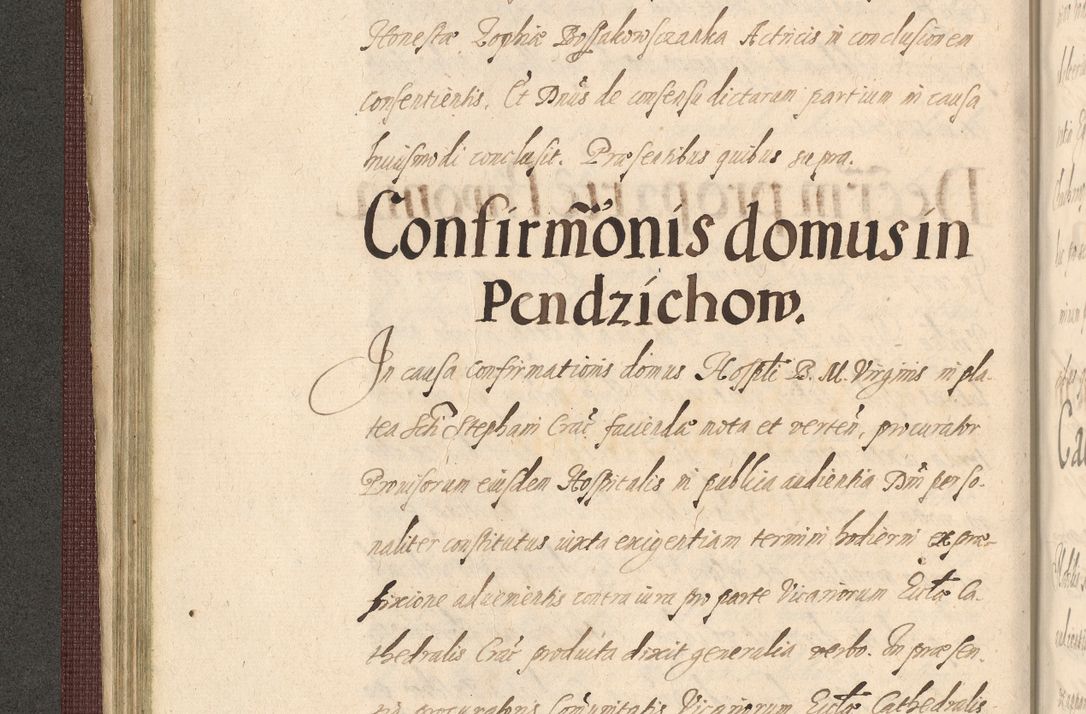 Honestæ Zophiæ Bossakowsczanka Actricis in conclusionem
consentientis. Et Dnūs de consensu dictarum partium in causa
huiusmodi conclusit. Præsentibus quibus supra.
Confirm̃onis domus in
Pendzichow.
In causa confirmationis domus Hospĩtl B. M. Virginis in pla-
tea Scĩ Stephani Crac̃ faciendæ mota et verteñ, procurator
Prouisorum eiusdem Hospitalis in publica audientia Dñi perso-
naliter constitutus iuxta exigentiam termini hodierni ex præ-
fixione aduenientis contra iura pro parte Vicariorum Eccl̃æ Ca-
thedralis Crac̃ producta dixit generalia verbo. In præsen-
tia procuratoris Com̃unitatis Vicariorum Eccl̃æ Cathedralis